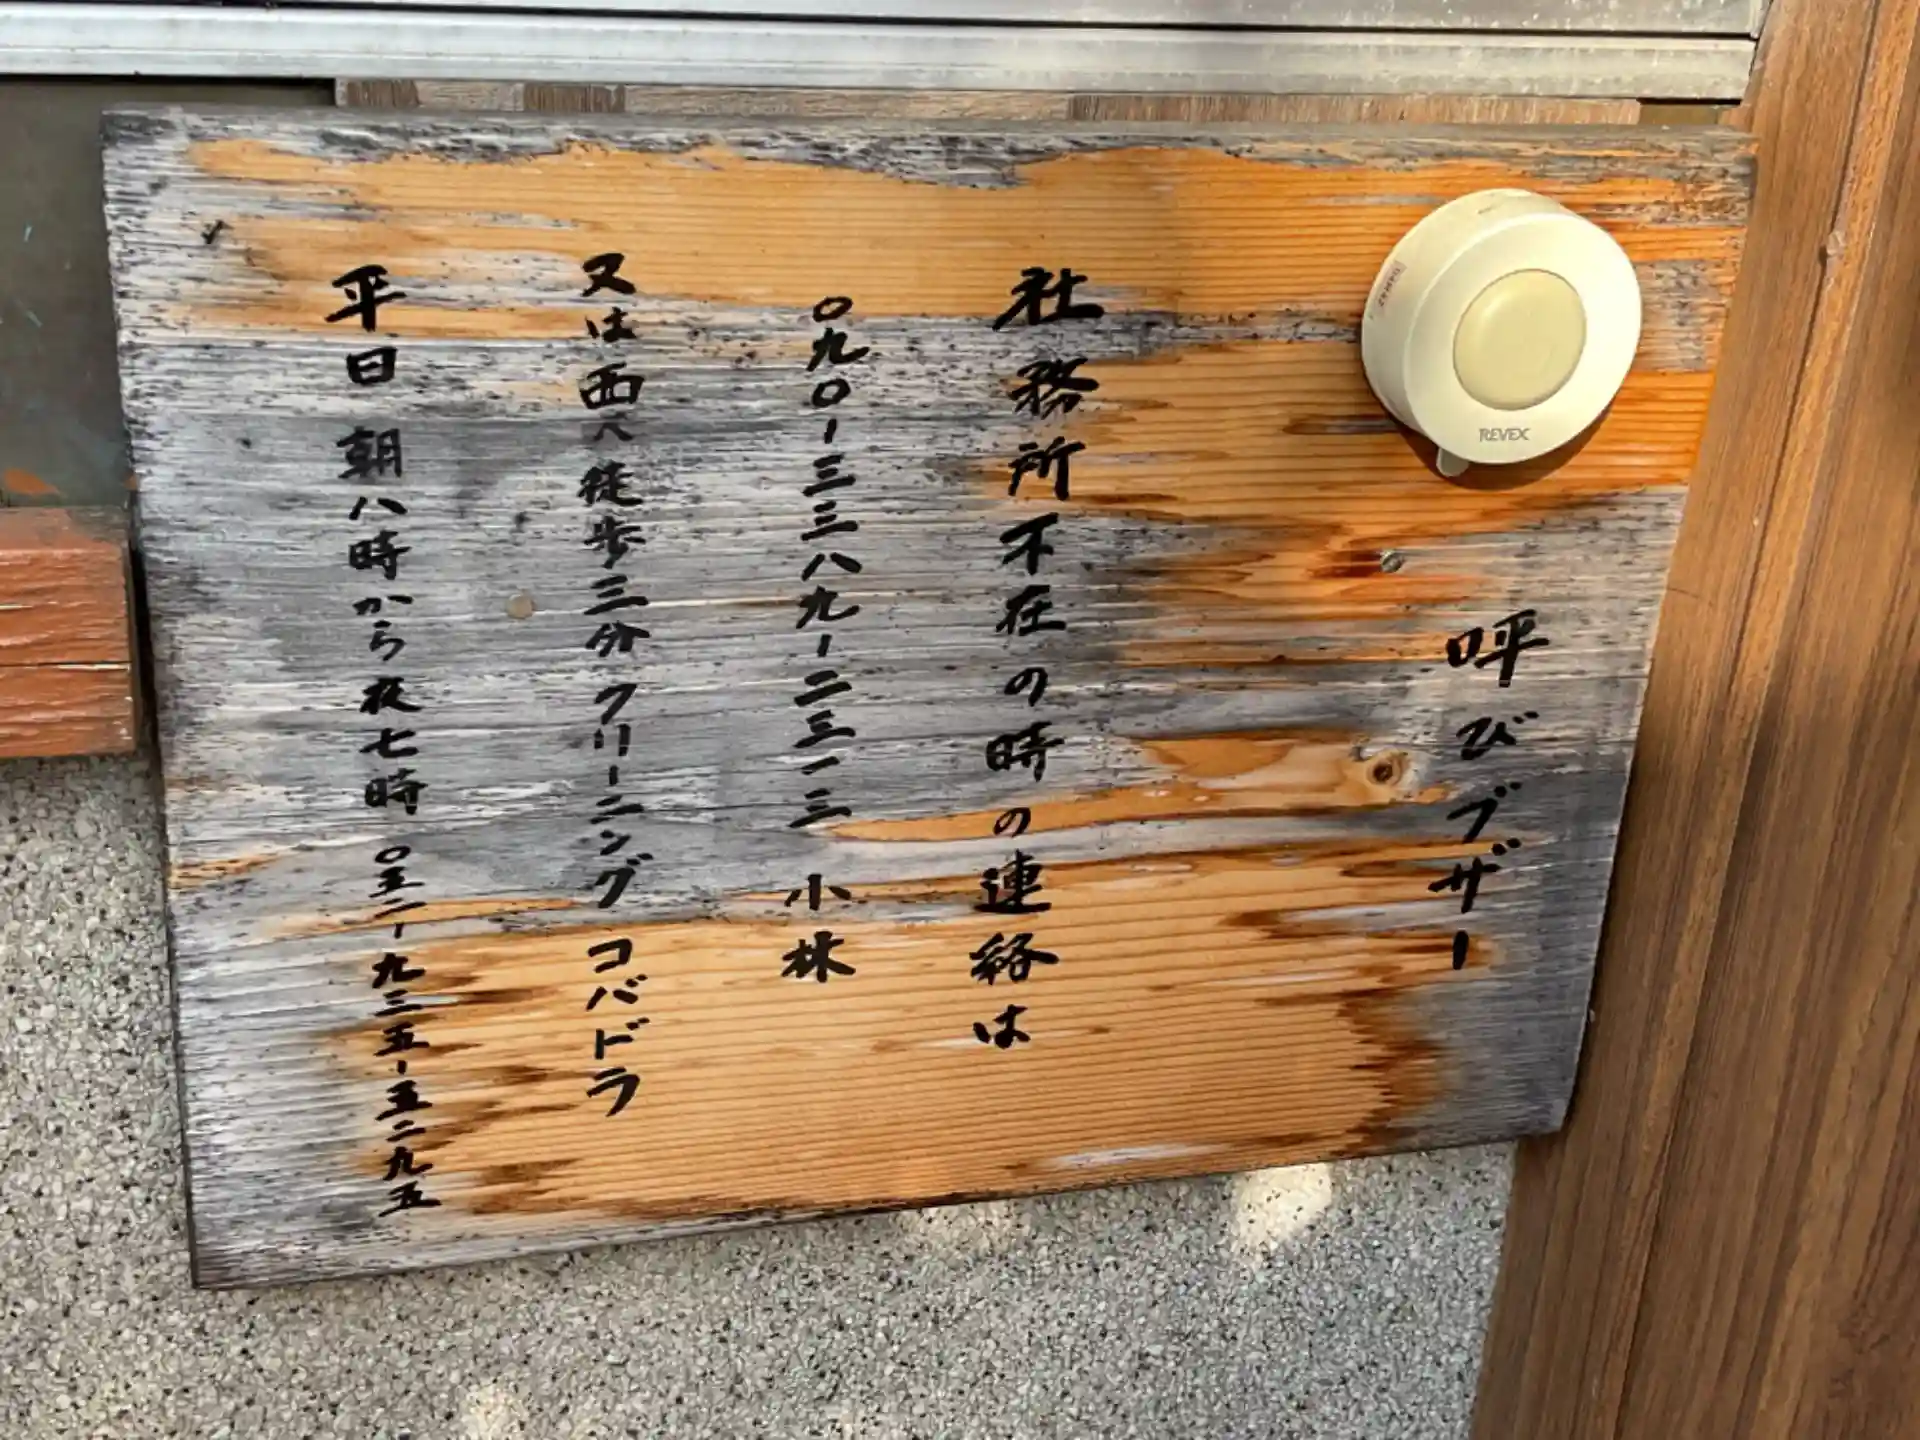 REVEX
呼びブザー
社務所不在の時の連絡は
〇九〇-三三八九-二三一三 小林
又は西へ徒歩三分 クリーニング コバドラ
平日 朝八時から夜七時 〇五二-九三五-五二九五